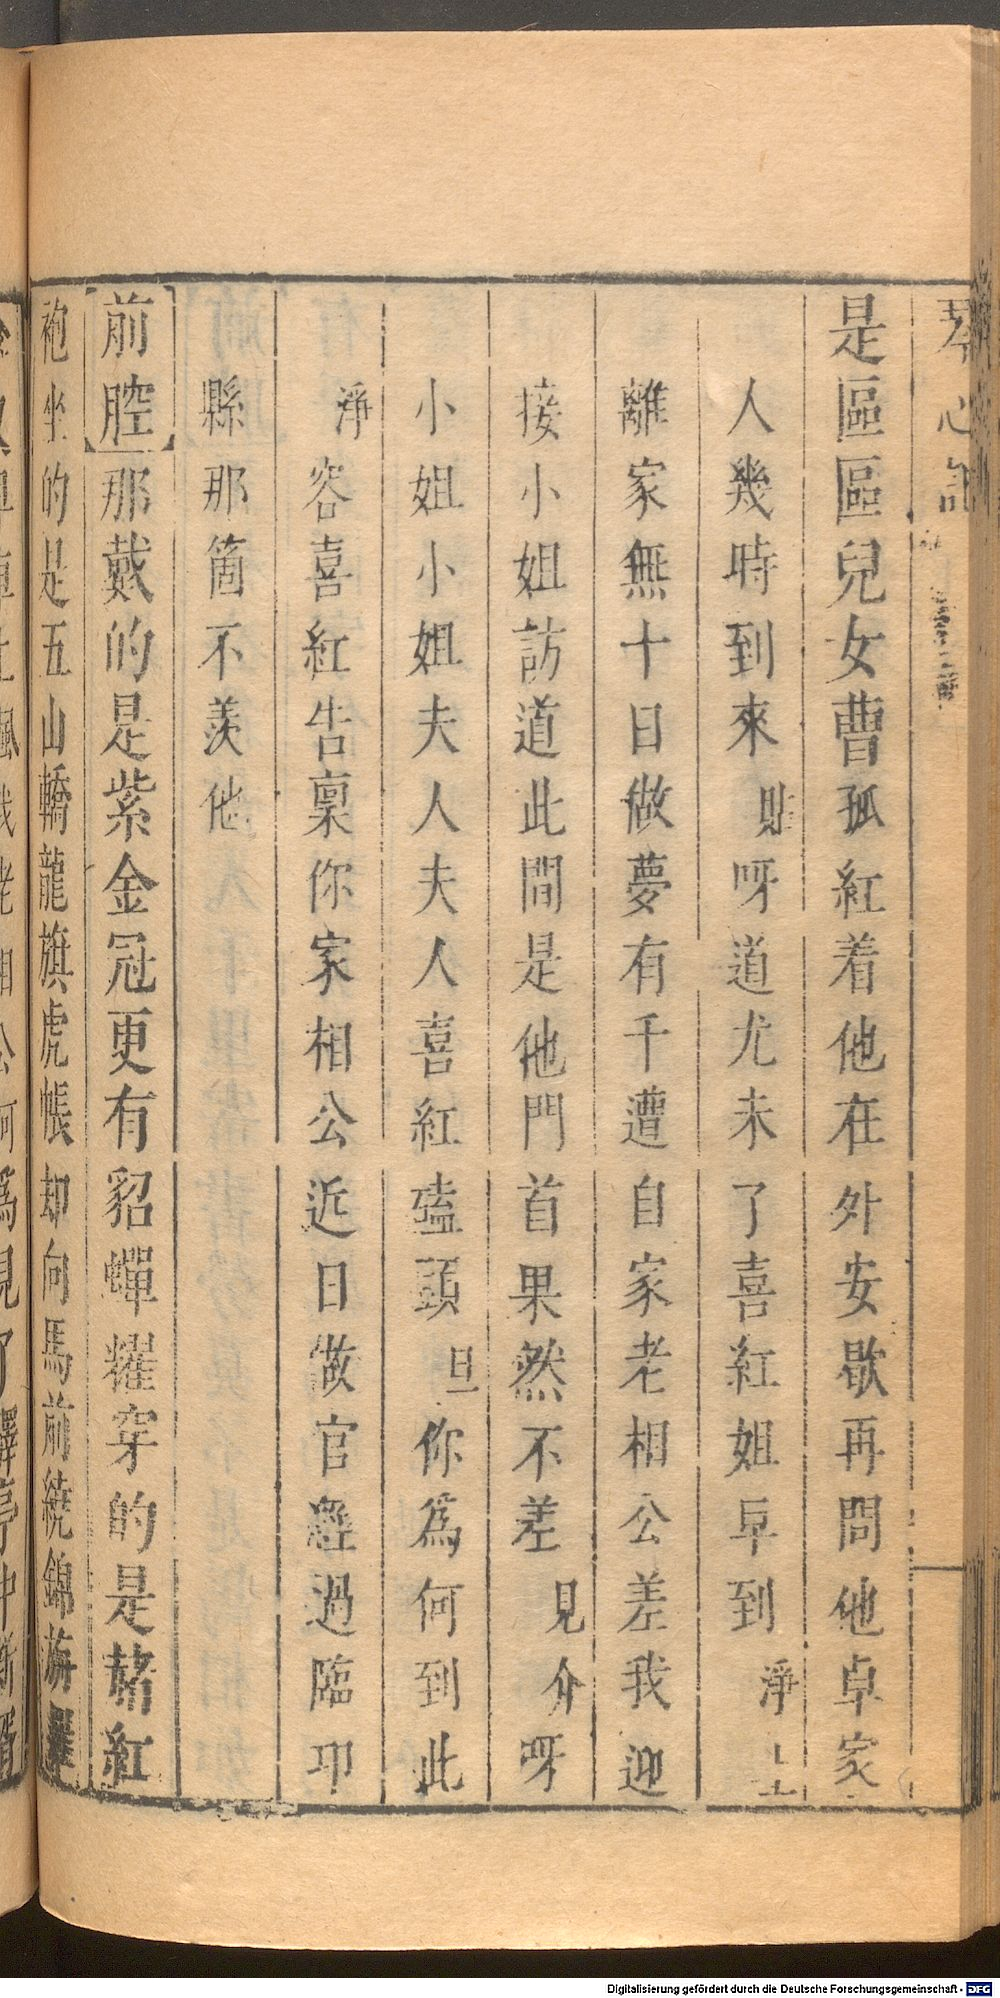 琴心記
是區區兒女曹孤紅着他在外安歇再問他卓家
人幾時到來貼呀道尤未了喜紅姐早到淨上
離家無十日做夢有千遭自家老相公差我迎
接小姐訪道此間是他門首果然不差見介呀
小姐小姐夫人夫人喜紅磕頭旦你爲何到此
淨容喜紅告稟你家相公近日做官經過臨卭
縣那箇不羨他
前腔那戴的是紫金冠更有貂蟬耀穿的是赭紅
袍坐的是五山轎龍旗虎帳却向馬前繞錦旃
Digitalisierung gefördert durch die Deutsche Forschungsgemeinschaft - DFG